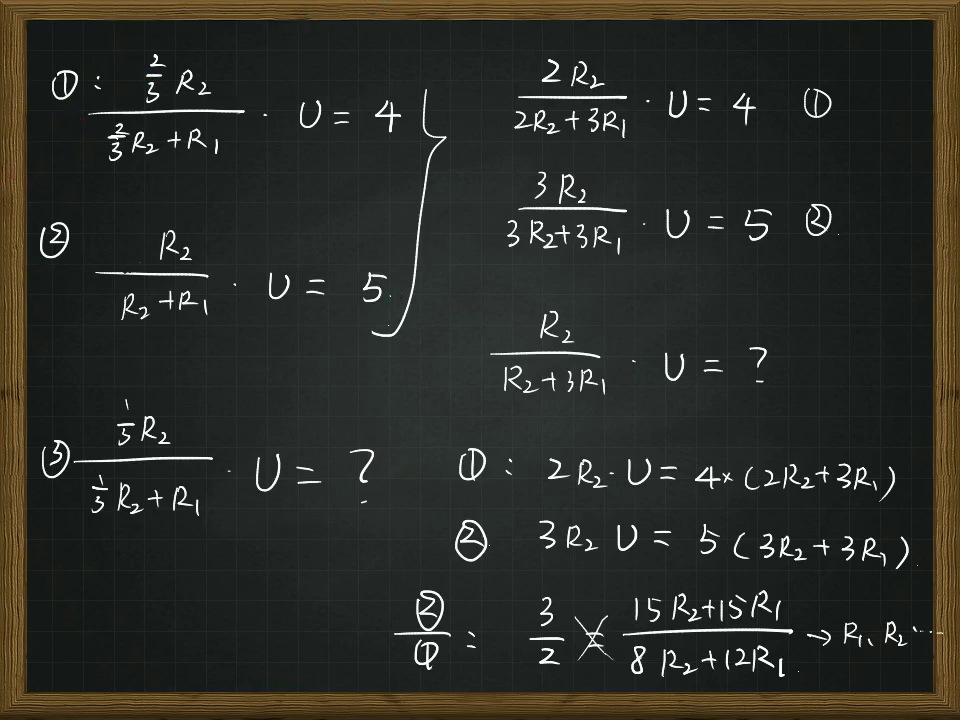 ①: (2/3 R₂)/(2/3 R₂+R₁) · U = 4
② R₂/(R₂+R₁) · U = 5
③ (1/3 R₂)/(1/3 R₂+R₁) · U = ?
2R₂/(2R₂+3R₁) · U = 4 ①
3R₂/(3R₂+3R₁) · U = 5 ②.
R₂/(R₂+3R₁) · U = ?
①: 2R₂·U = 4×(2R₂+3R₁)
② 3R₂ U = 5(3R₂+3R₁).
②/①: 3/2 = (15R₂+15R₁)/(8R₂+12R₁) → R₁、R₂ ...